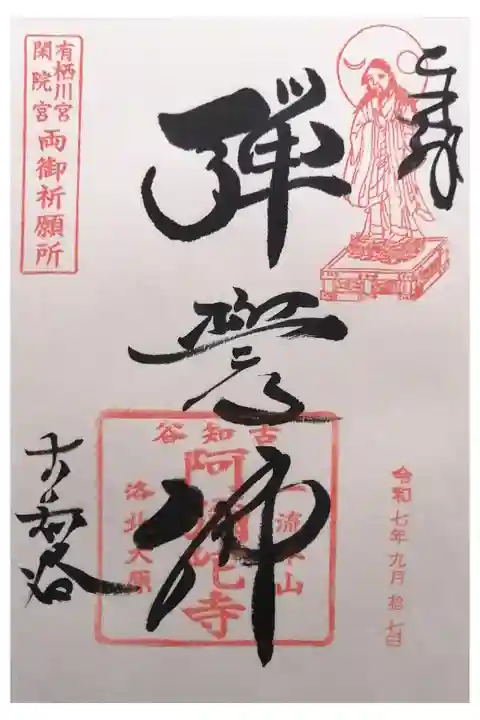 奉拝
彈誓佛
古知谷
有栖川宮
閑院宮
両御祈願所
古知谷
一流本山
阿弥陀寺
洛北大原
令和七年九月拾七日